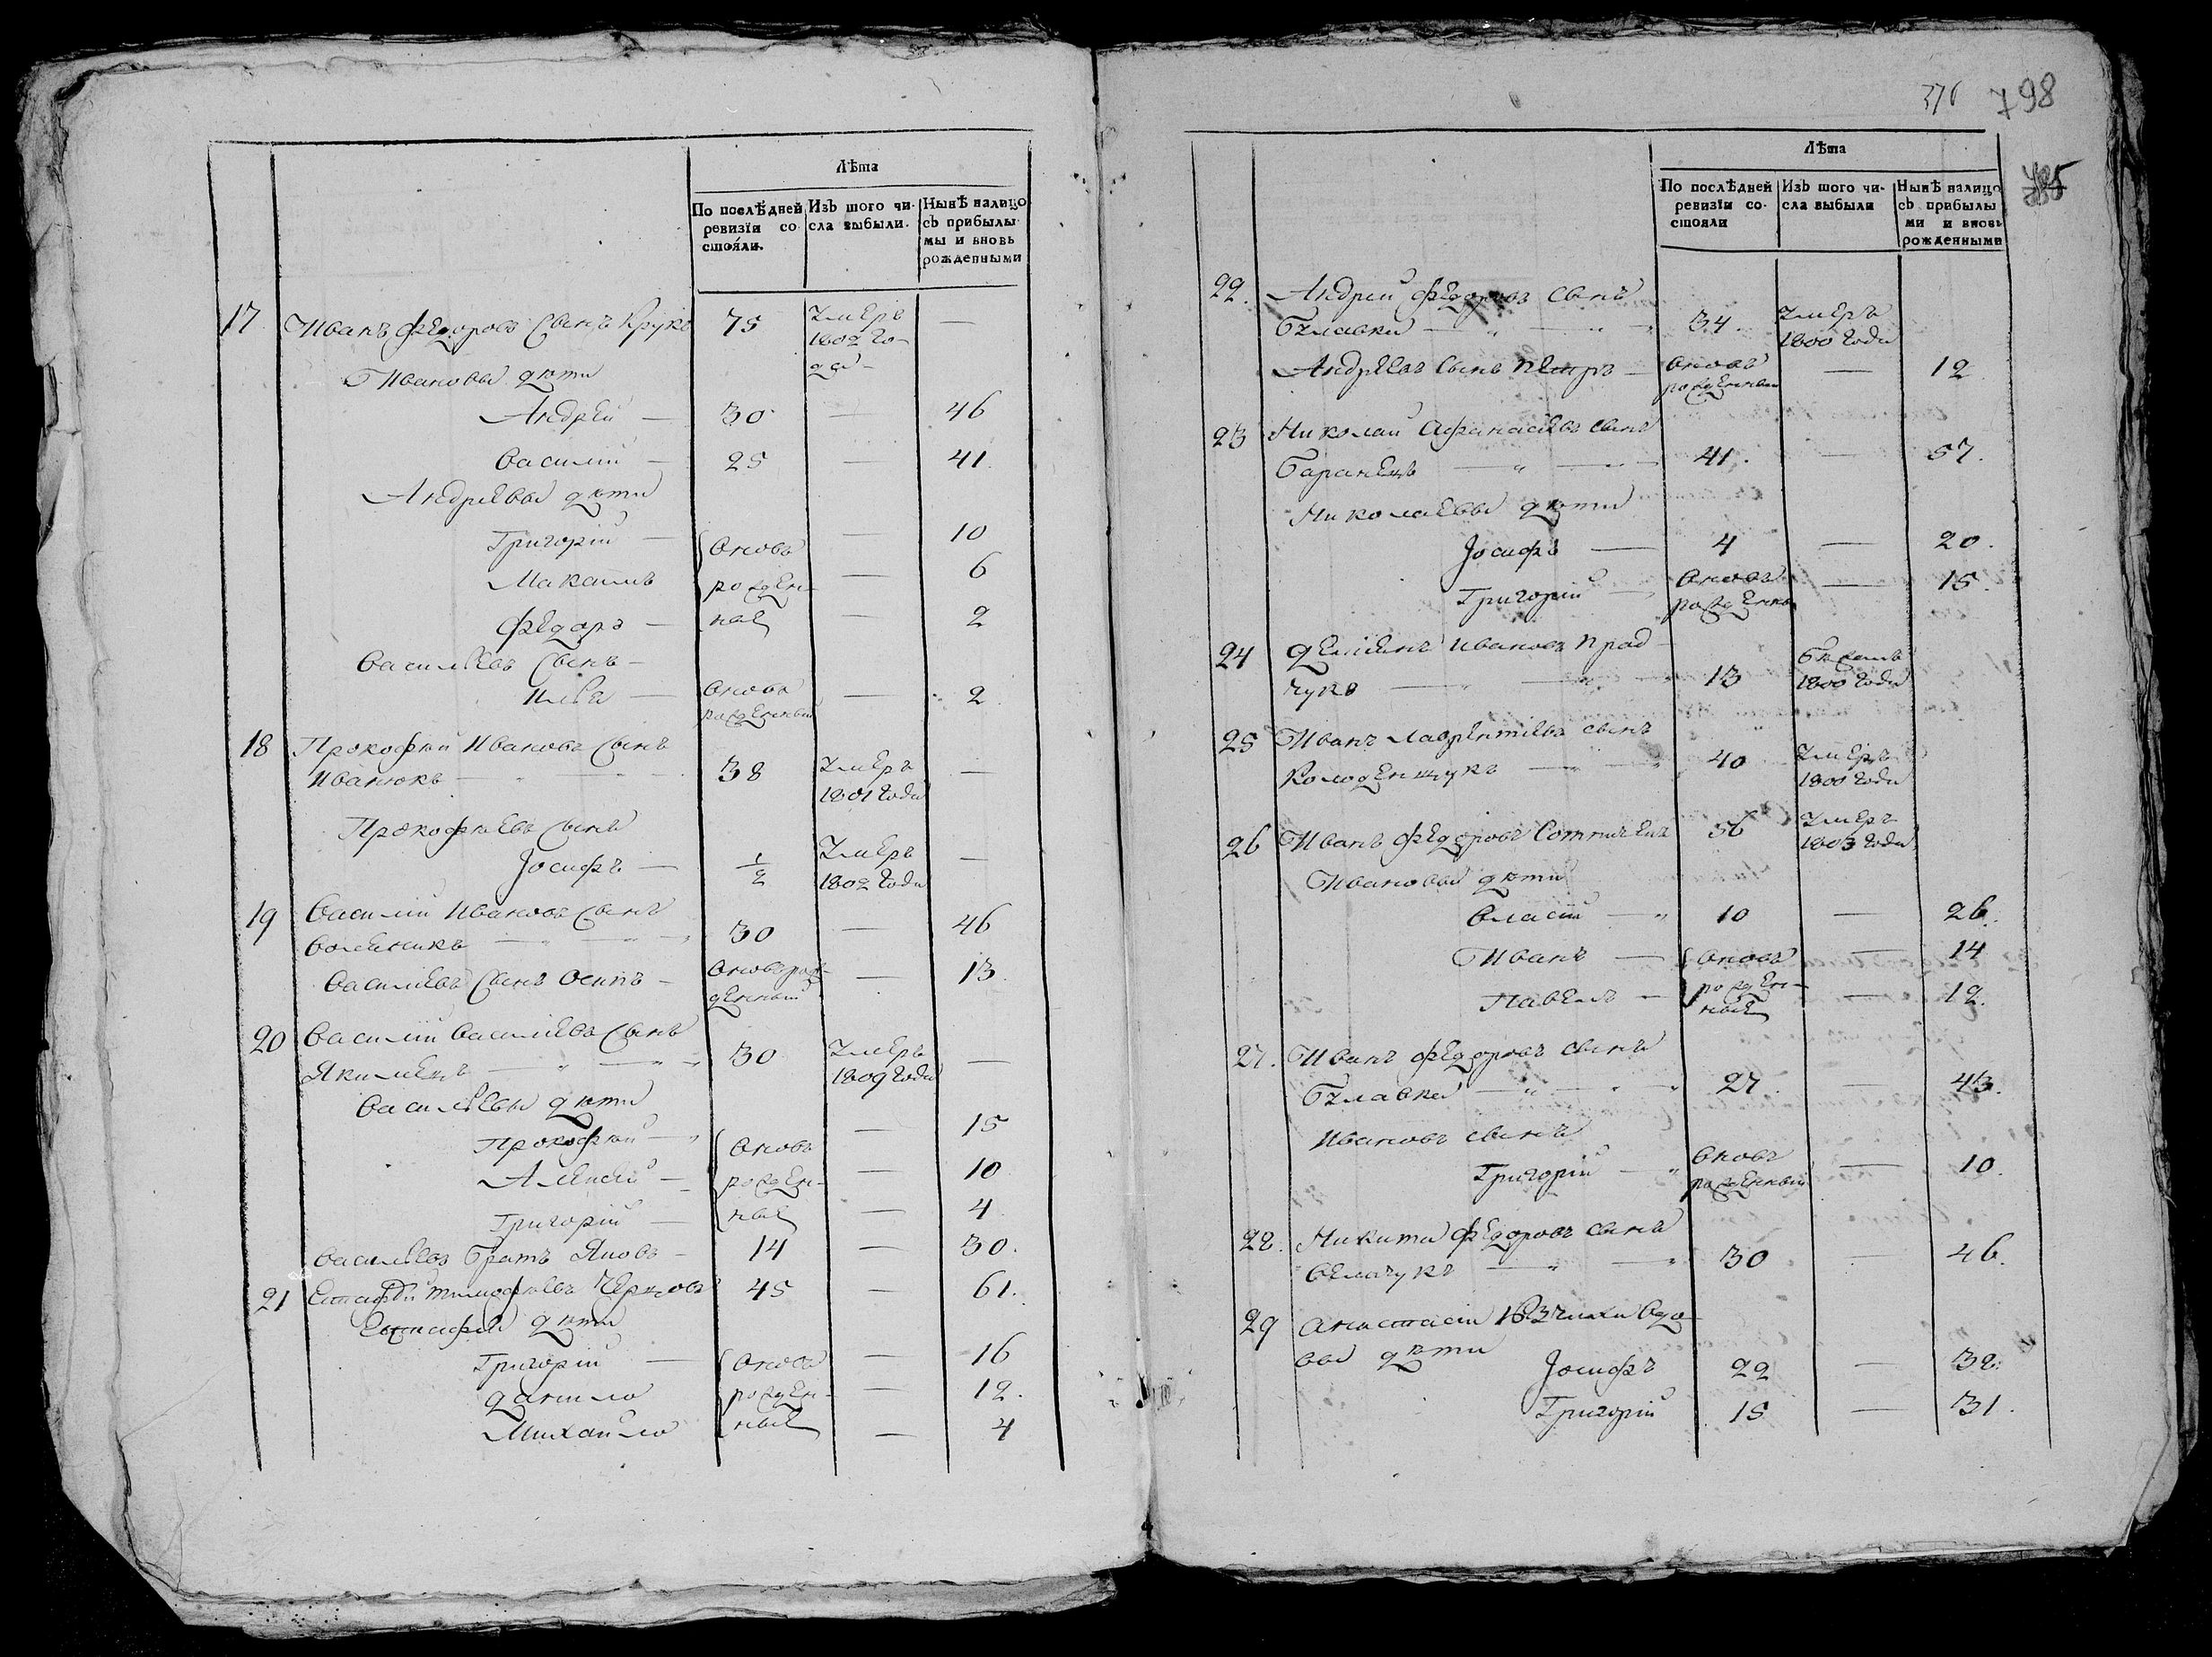 Лѣта
По послѣдней ревизіи состояли.
Изъ того числа выбыли.
Нынѣ налицо съ прибылымы и вновь рожденными
17 Иванъ Федоровъ сынъ Крукъ 75 Умеръ 1802 го- —
Ивановы дѣти да
Андрей — 30 — 46
Василій — 25 — 41.
Андреевы дѣти
Григорій — вновь — 10
Максимъ рожден- — 6
Федоръ — ные — 2
Васильевъ сынъ —
Илья — вновь рожденный — 2
18 Прокофѣй Ивановъ сынъ
Иванюкъ — 38 Умеръ 1801 года —
Прокофѣевъ сынъ
Іосифъ — 1/2 Умеръ 1802 года —
19 Василій Ивановъ сынъ
30 — 46
Васильевъ сынъ Осипъ — вновь рожденный — 13.
20 Василій Васильевъ сынъ
Якимецъ — 30 Умеръ 1809 года —
Васильевы дѣти
Прокофѣй — вновь — 15
Алексѣй — рожден- — 10
Григорій — ные — 4
Васильевъ братъ Яковъ — 14 — 30.
21 Тимофѣевъ 45 — 61.
дѣти
Григорій — вновь — 16
Данило рожден- — 12.
Михайло ные — 4
376 798
Лѣта
По послѣдней ревизіи состояли
Изъ того числа выбыли
Нынѣ налицо съ прибылыми и вновь рожденными
22. Андрей Федоровъ сынъ
Булавка — 34. Умеръ 1800 года
Андреевъ сынъ Петръ — вновь рожденный — 12
23 Николай Афанасіевъ сынъ
Баранецъ — 41. — 57.
Николаевы дѣти
Іосифъ — 4 — 20.
Григорій — вновь рожденны — 15.
24 Демьянъ Ивановъ Прад-
чукъ — 13 Бѣжалъ 1800 года
25 Иванъ Лаврентіевъ сынъ
Колоденщукъ — 40 Умеръ 1800 года
26 Иванъ Федоровъ 56 Умеръ 1803 года
Ивановы дѣти
Власій — 10 — 26.
Иванъ — вновь — 14
Павелъ — рожден-ные — 12.
27. Иванъ Федоровъ сынъ
Булавка — 27. — 43.
Ивановъ сынъ
Григорій — вновь рожденный — 10.
28. Никита Федоровъ сынъ
30 — 46.
29 Анастасіи вдо-
вы дѣти Іосифъ 22 — 38.
Григорій 15 — 31.